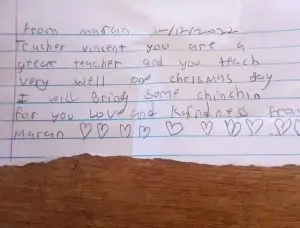 From maran 12/12/2022
Teasher vinsent you are a
great teacher and you teach
very well one chrismas day
I will Bring some chinchin
for you Love and Kaindness from
Maran ♡ ♡ ♡ ♡ ♡ ♡ ♡ ♡ ♡ ♡